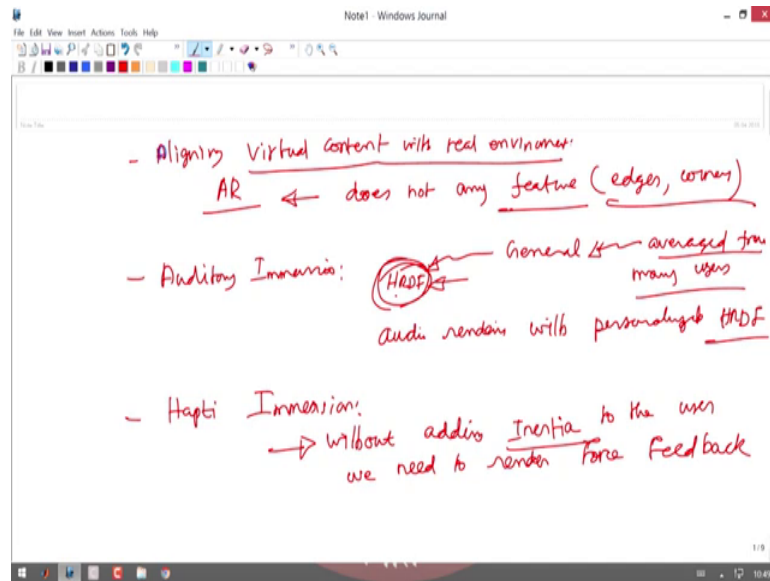 Note1 - Windows Journal
File Edit View Insert Actions Tools Help
B I
Note Title
- Aligning Virtual content with real envinomer.
AR ← does not any feature (edges, corners)
- Auditory Immersion: HRDF ← General ← averaged from
many users
audio rendain with personalized HRDF
- Hapti Immersion:
→ without adding Inertia to the user
we need to render Force Feedback
1/9
10:49